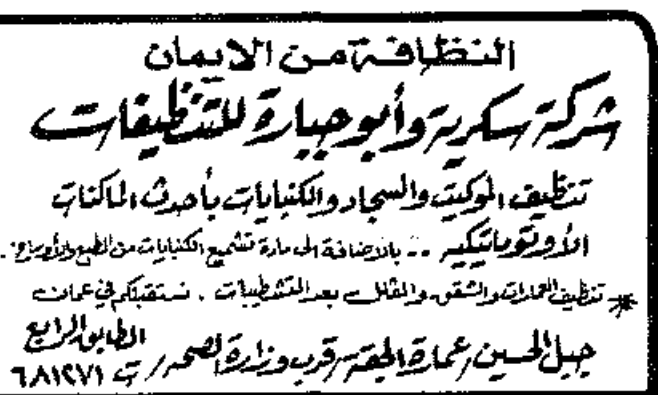 النظافة من الايمان
شركة سكرية وأبو جبارة للتنظيفات
تنظيف الموكيت والسجاد والكنبايات بأحدث الماكنات
الأوتوماتيكيه .. بالاضافة الى مادة تشميع الكنبايات من البقع والأوساخ .
* تنظيف العمارات والشقق والفلل بعد التشطيبات . نستقبلكم في عمان
جبل الحسين / عمارة الحقة / قرب وزارة الصحة / الطابق الرابع ت ٦٨١٢٧١